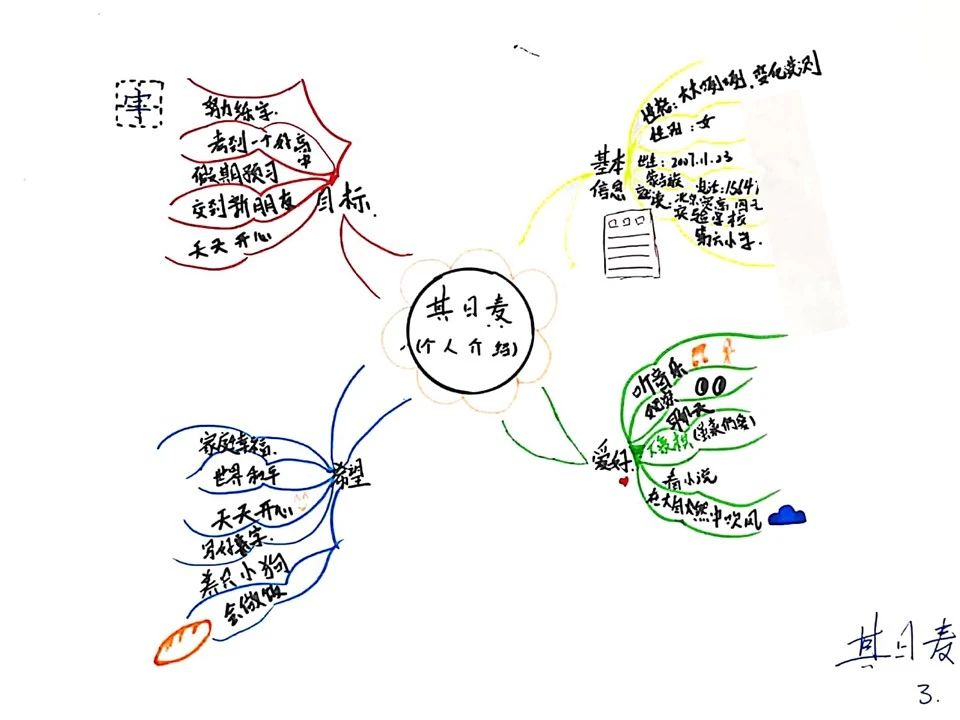 其日麦
(个人介绍)
目标
努力练字.
考到一个好高中
假期预习
交到新朋友
天天开心
字
基本信息
性格:大大咧咧.变化莫测
性别:女
出生:2007.11.23
电话:15641
实验学校
第六小学.
爱好.
听音乐
聊天
下象棋
看小说
在大自然中吹风
希望
家庭幸福.
世界和平
天天开心
写好素字.
养只小狗
会做饭
其日麦
3.